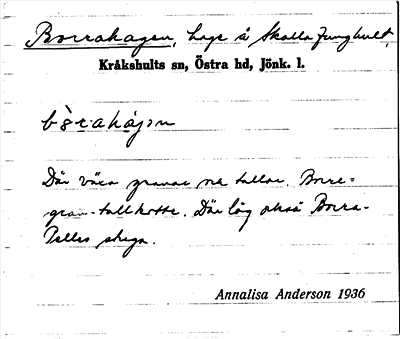 Borrahagen, hage å Skalla Ljunghult,
Kråkshults sn, Östra hd, Jönk. l.
bòrahágən
Där växa granar och tallar. Borre =
gran- tallkotte. Där låg också Borra-
Pelles stuga.
Annalisa Anderson 1936